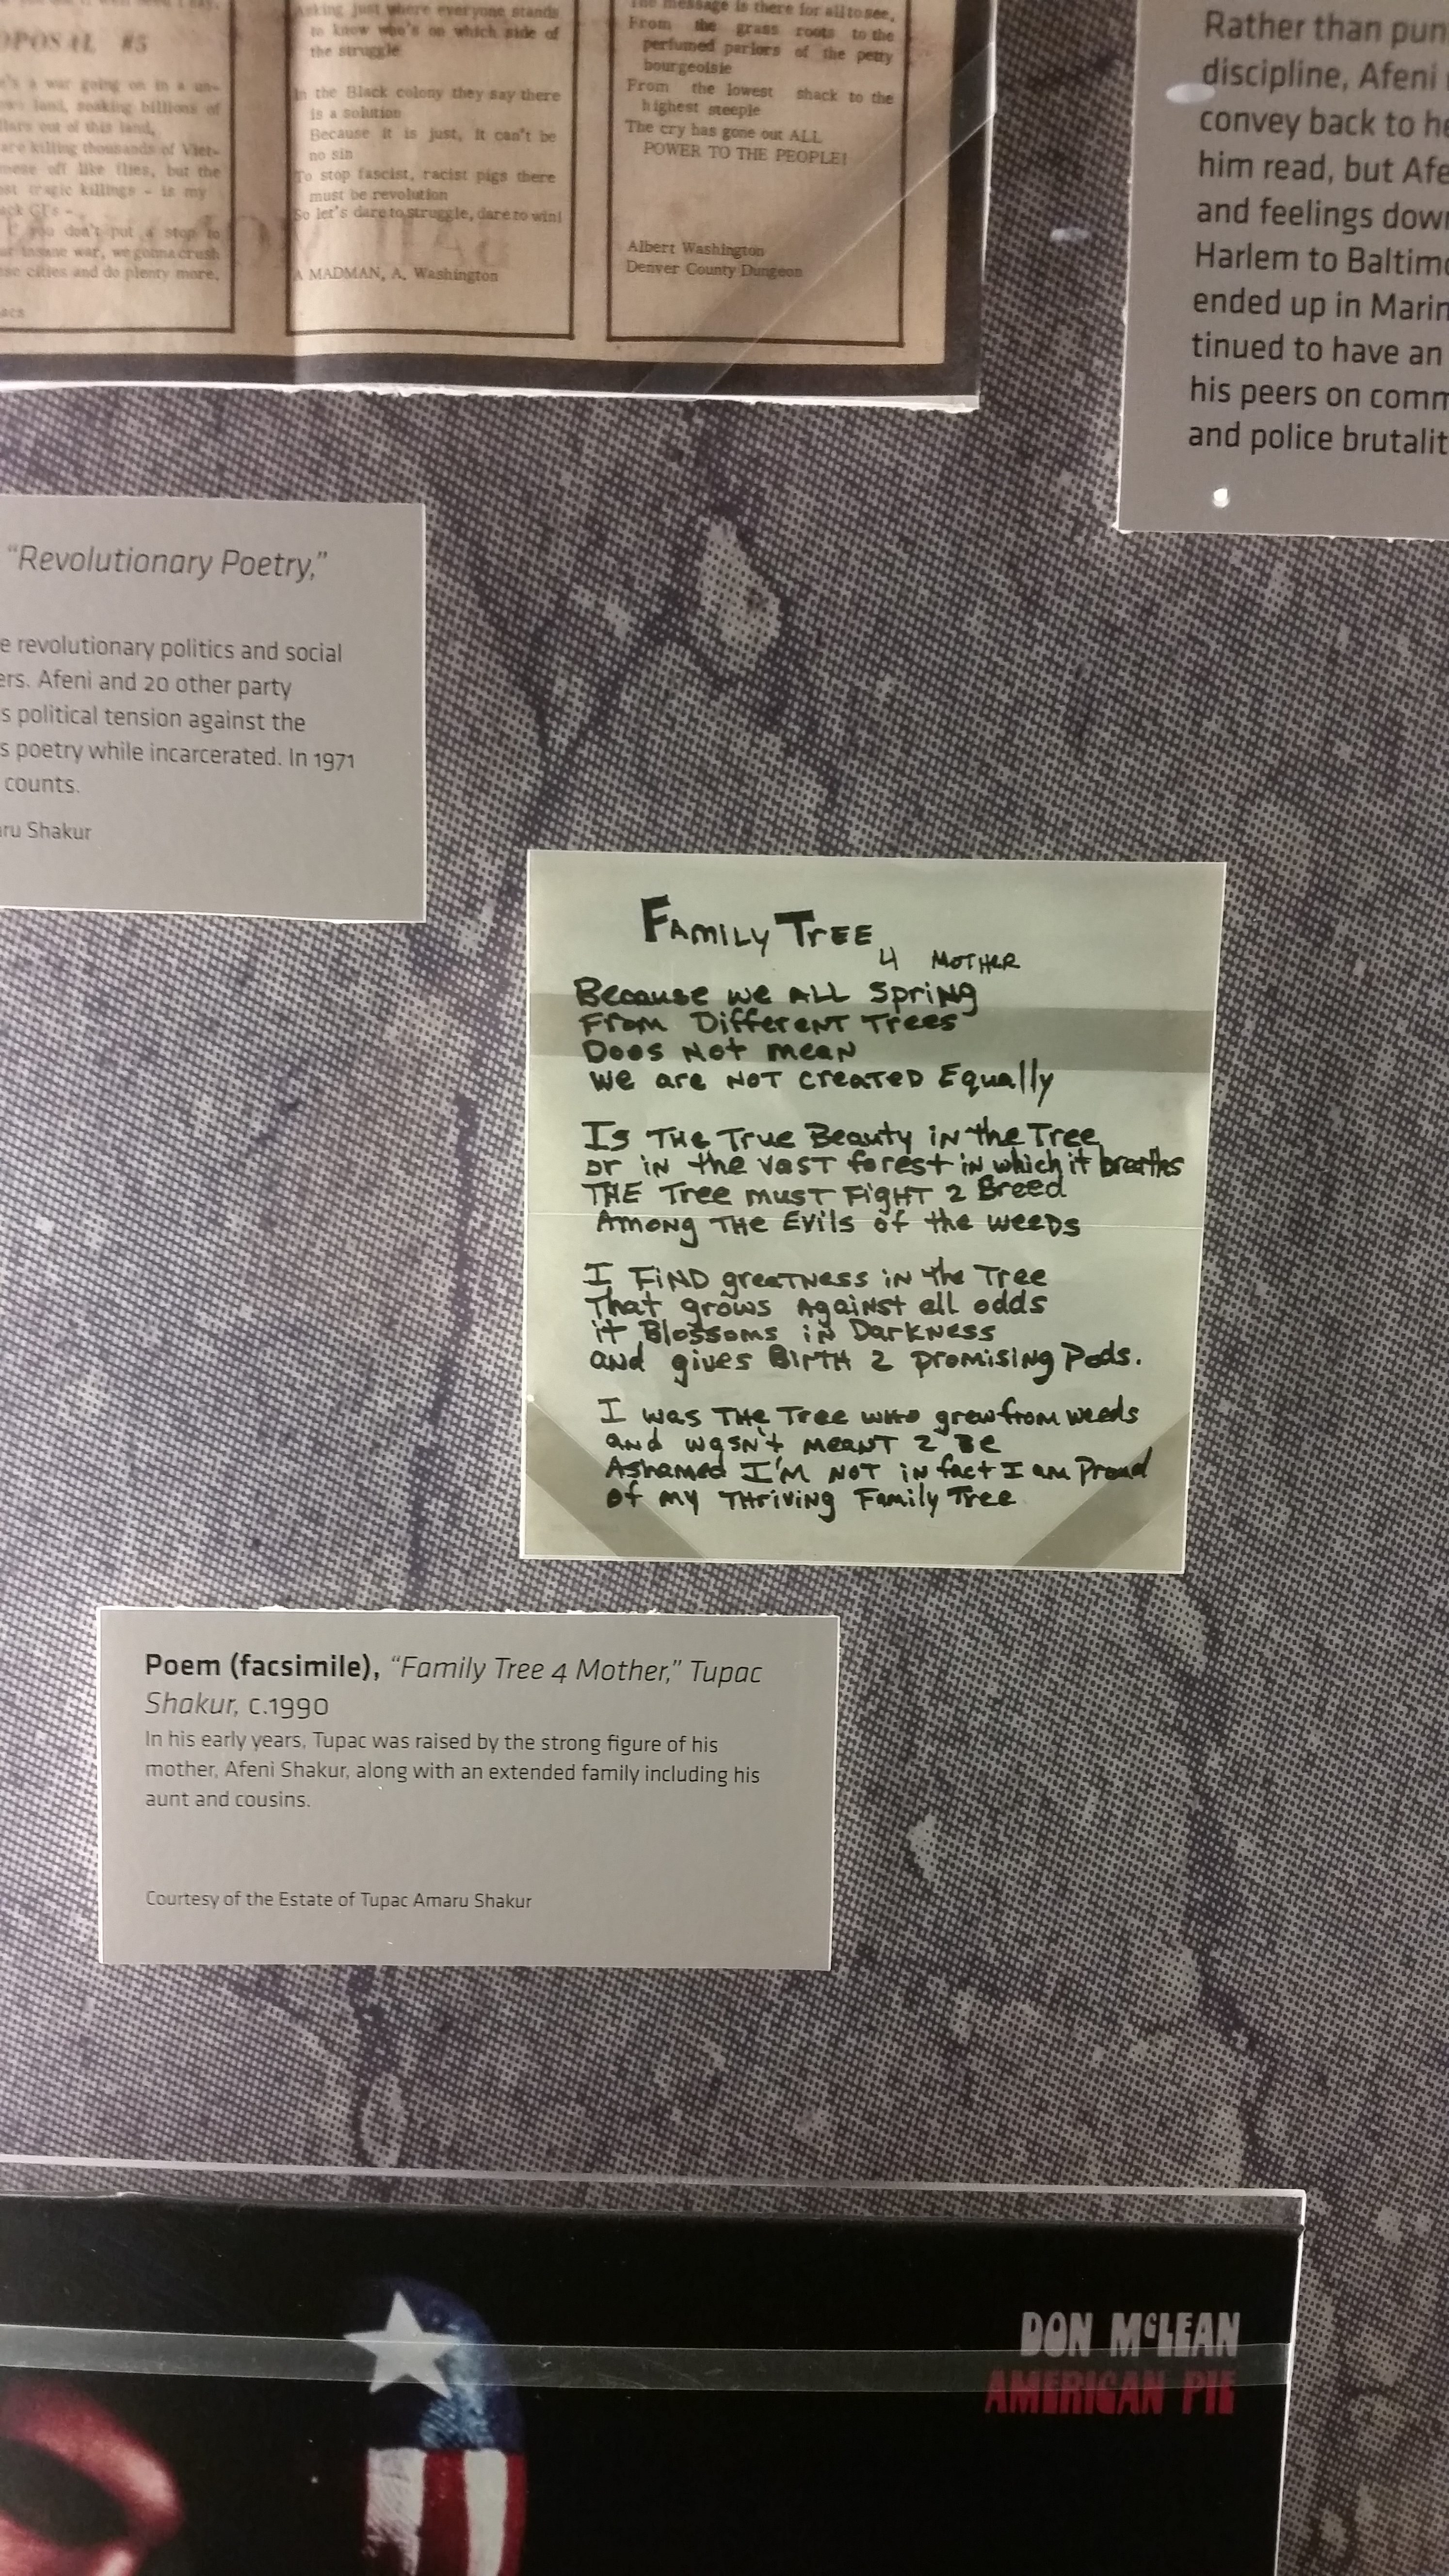 OPOSAL #5
's a war going on in a un-
land, soaking billions of
llars out of this land,
are killing thousands of Viet-
mese off like flies, but the
st tragic killings - is my
ack GI's -
you don't put a stop to
ur insane war, we gonna crush
se cities and do plenty more.
asking just where everyone stands
to know who's on which side of
the struggle
In the Black colony they say there
is a solution
Because it is just, it can't be
no sin
To stop fascist, racist pigs there
must be revolution
So let's dare to struggle, dare to win!
A MADMAN, A. Washington
The message is there for all to see,
From the grass roots to the
perfumed parlors of the petty
bourgeoisie
From the lowest shack to the
highest steeple
The cry has gone out ALL
POWER TO THE PEOPLE!
Albert Washington
Denver County Dungeon
Rather than pun
discipline, Afeni
convey back to h
him read, but Afe
and feelings dow
Harlem to Baltimo
ended up in Marin
tinued to have an
his peers on comm
and police brutalit
"Revolutionary Poetry,"
e revolutionary politics and social
ers. Afeni and 20 other party
s political tension against the
s poetry while incarcerated. In 1971
counts.
aru Shakur
FAMILY TREE
4 MOTHER
Because we ALL Spring
From Different Trees
Does Not mean
we are NOT created Equally
Is THE True Beauty in the Tree
or in the vast forest in which it breaths
THE Tree must Fight 2 Breed
Among THE Evils of the weeds
I FIND greatness in the Tree
That grows Against all odds
it Blossoms in Darkness
and gives Birth 2 promising Pods.
I was THE Tree who grew from weeds
and wasn't meant 2 Be
Ashamed I'm NOT in fact I am Proud
of my Thriving Family Tree
Poem (facsimile), "Family Tree 4 Mother," Tupac
Shakur, c.1990
In his early years, Tupac was raised by the strong figure of his
mother, Afeni Shakur, along with an extended family including his
aunt and cousins.
Courtesy of the Estate of Tupac Amaru Shakur
DON McLEAN
AMERICAN PIE